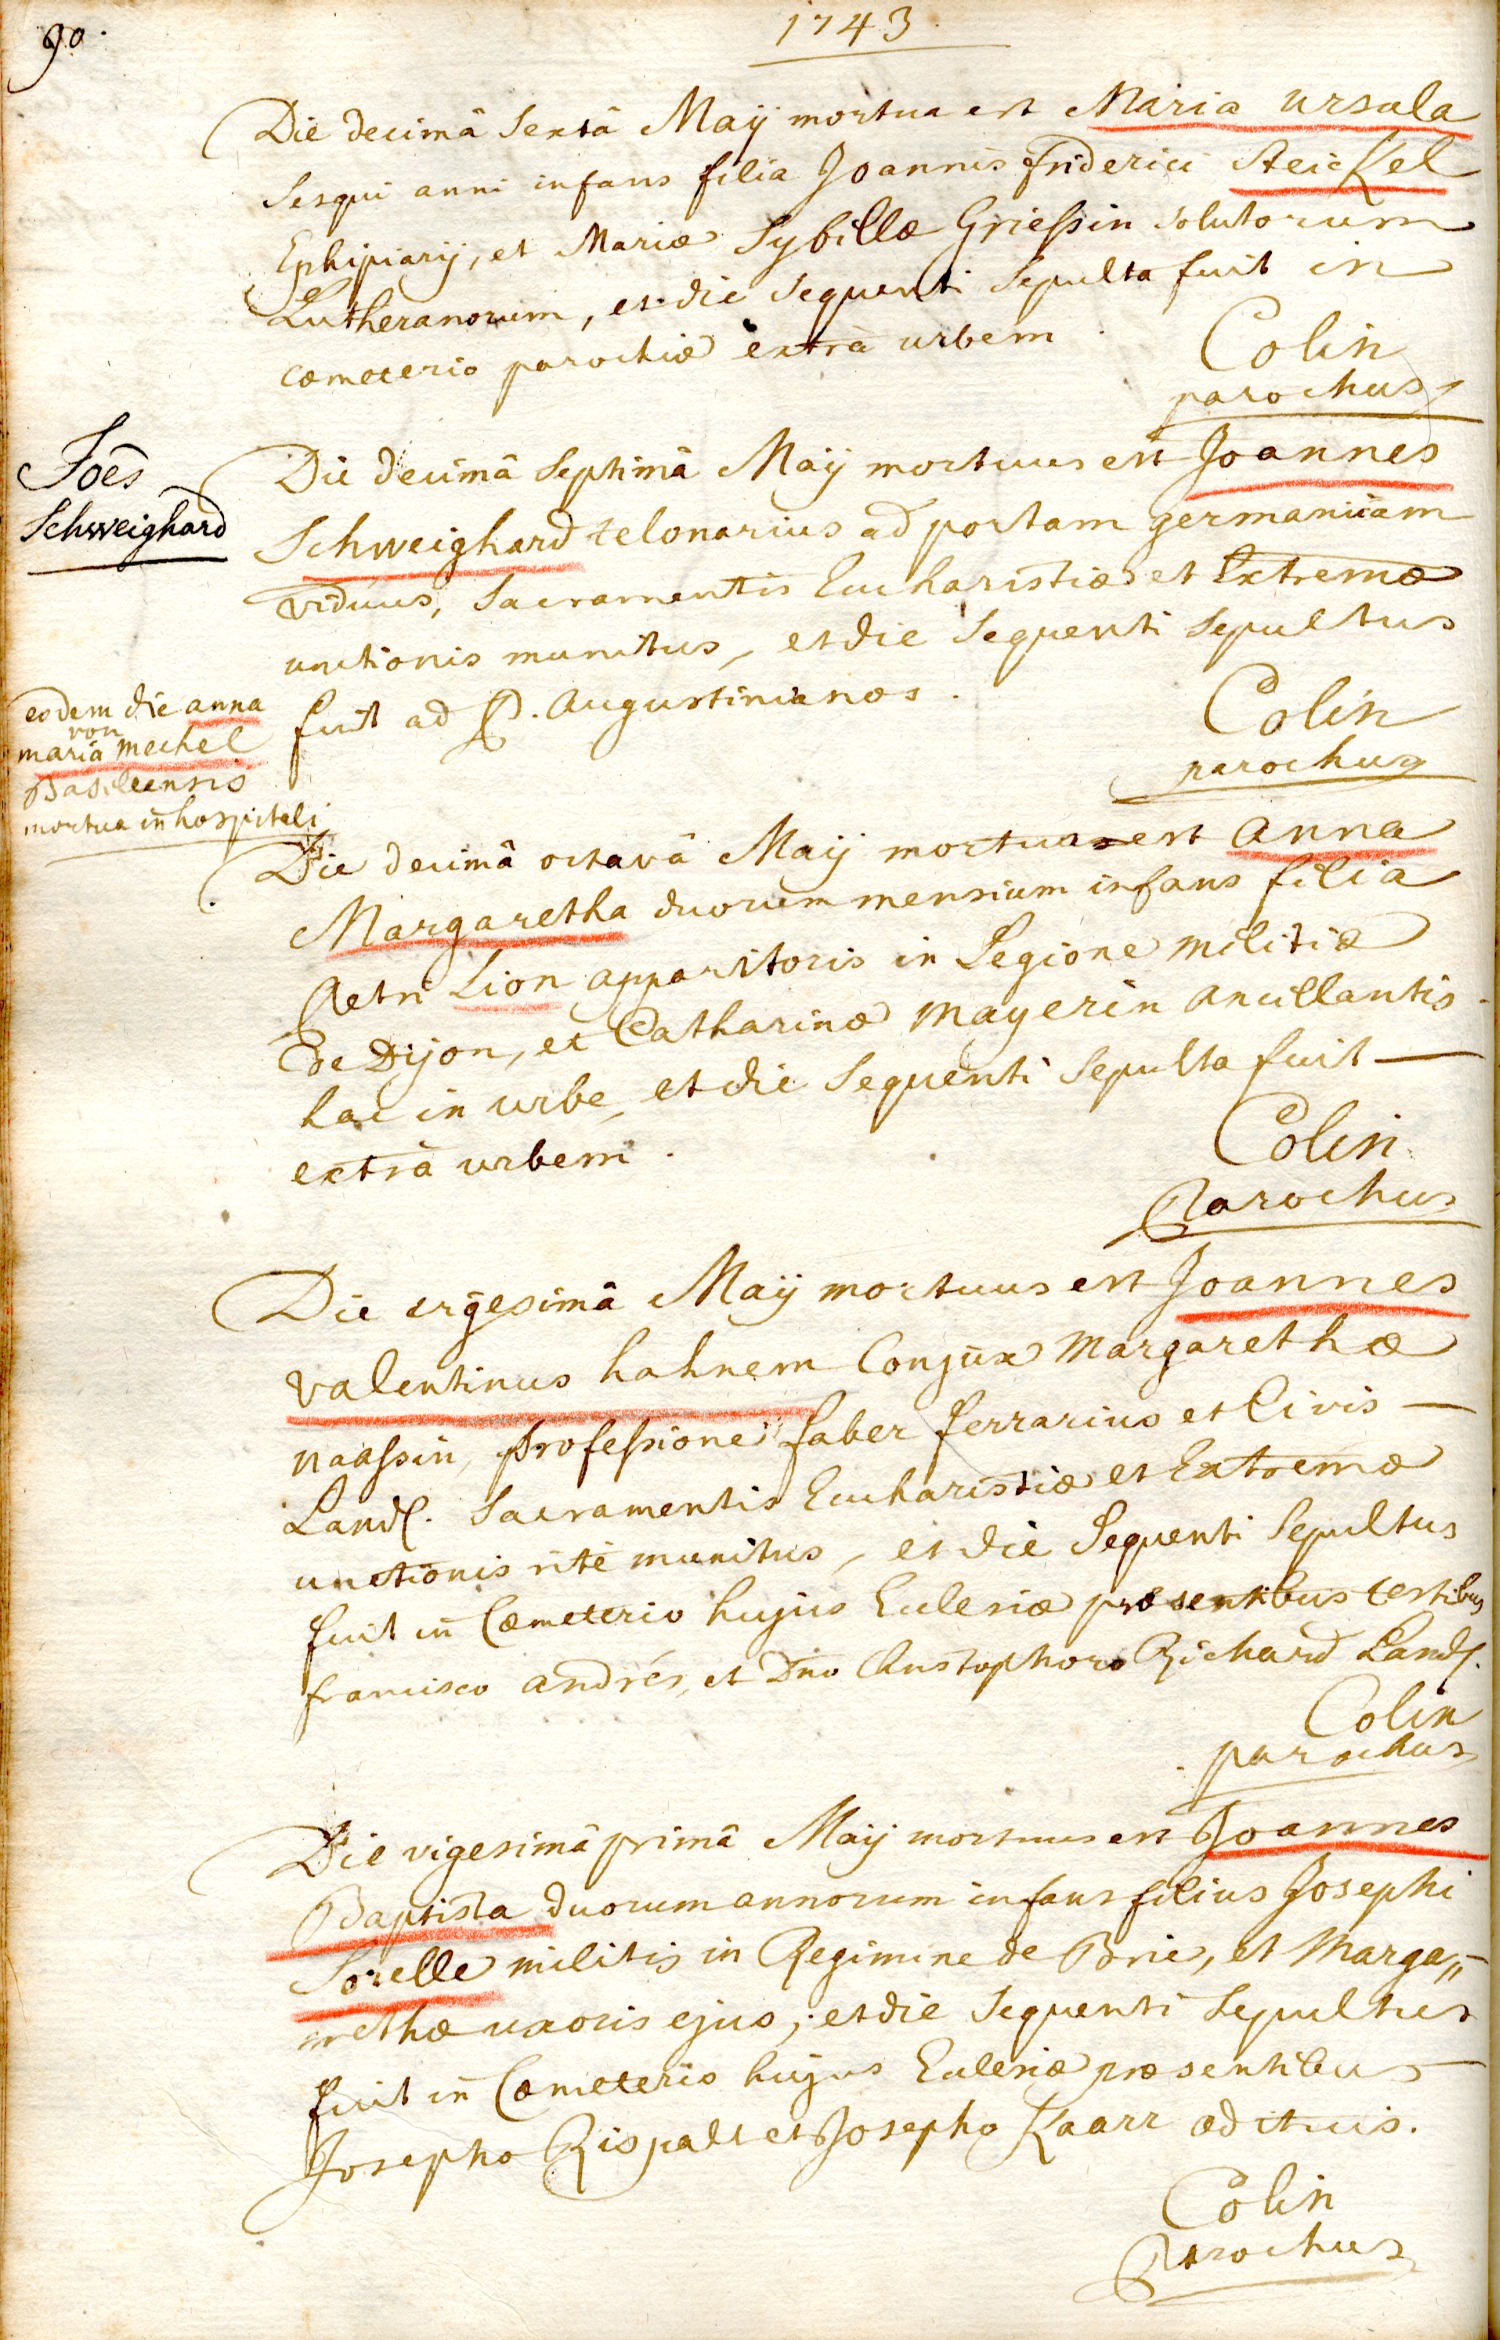 90.
1743.
Die decimâ sextâ Maÿ mortua est Maria Ursula
sesqui anni infans filia Joannis friderici Steickel
Ephipiarÿ, et Mariæ Sybillæ Griessin solutorum
Lutheranorum, et die sequenti sepulta fuit in
cœmeterio parochiæ extrà urbem.
Colin
parochus
Joēs
Schweighard
Die decimâ septimâ Maÿ mortuus est Joannes
Schweighard telonarius ad portam germanicam
viduus, Sacramentis Eucharistiæ et Extremæ
unctionis munitus, et die sequenti sepultus
fuit ad P. Augustinianos.
Colin
parochus
eodem die anna
von
maria mechel
Basileensis
mortua in hospitali
Die decimâ octavâ Maÿ mortua est Anna
Margaretha duorum mensium infans filia
Petri Lion apparitoris in Legione militiæ
De Dijon, et Catharinæ Mayerin ancillantis
hac in urbe, et die sequenti sepulta fuit
extrà urbem.
Colin
Parochus
Die vigesimâ Maÿ mortuus est Joannes
Valentinus hahnem Conjux Margarethæ
Naassin, professione faber ferrarius et Civis
Land. Sacramentis Eucharistiæ et Extremæ
unctionis ritè munitus, et die sequenti sepultus
fuit in Cæmeterio hujus Eclesiæ præsentibus testibus
francisco andrés, et Dno Christophoro Richard Land.
Colin
parochus
Die vigesimâ primâ Maÿ mortuus est Joannes
Baptista duorum annorum infans filius Josephi
Sorelle militis in Regimine de Brie, et Marga„
rethæ uxoris ejus, et die sequenti sepultus
fuit in Cæmeterio hujus Eclesiæ præsentibus
Josepho Rispalt et Josepho Kaarr ædituis.
Colin
Parochus